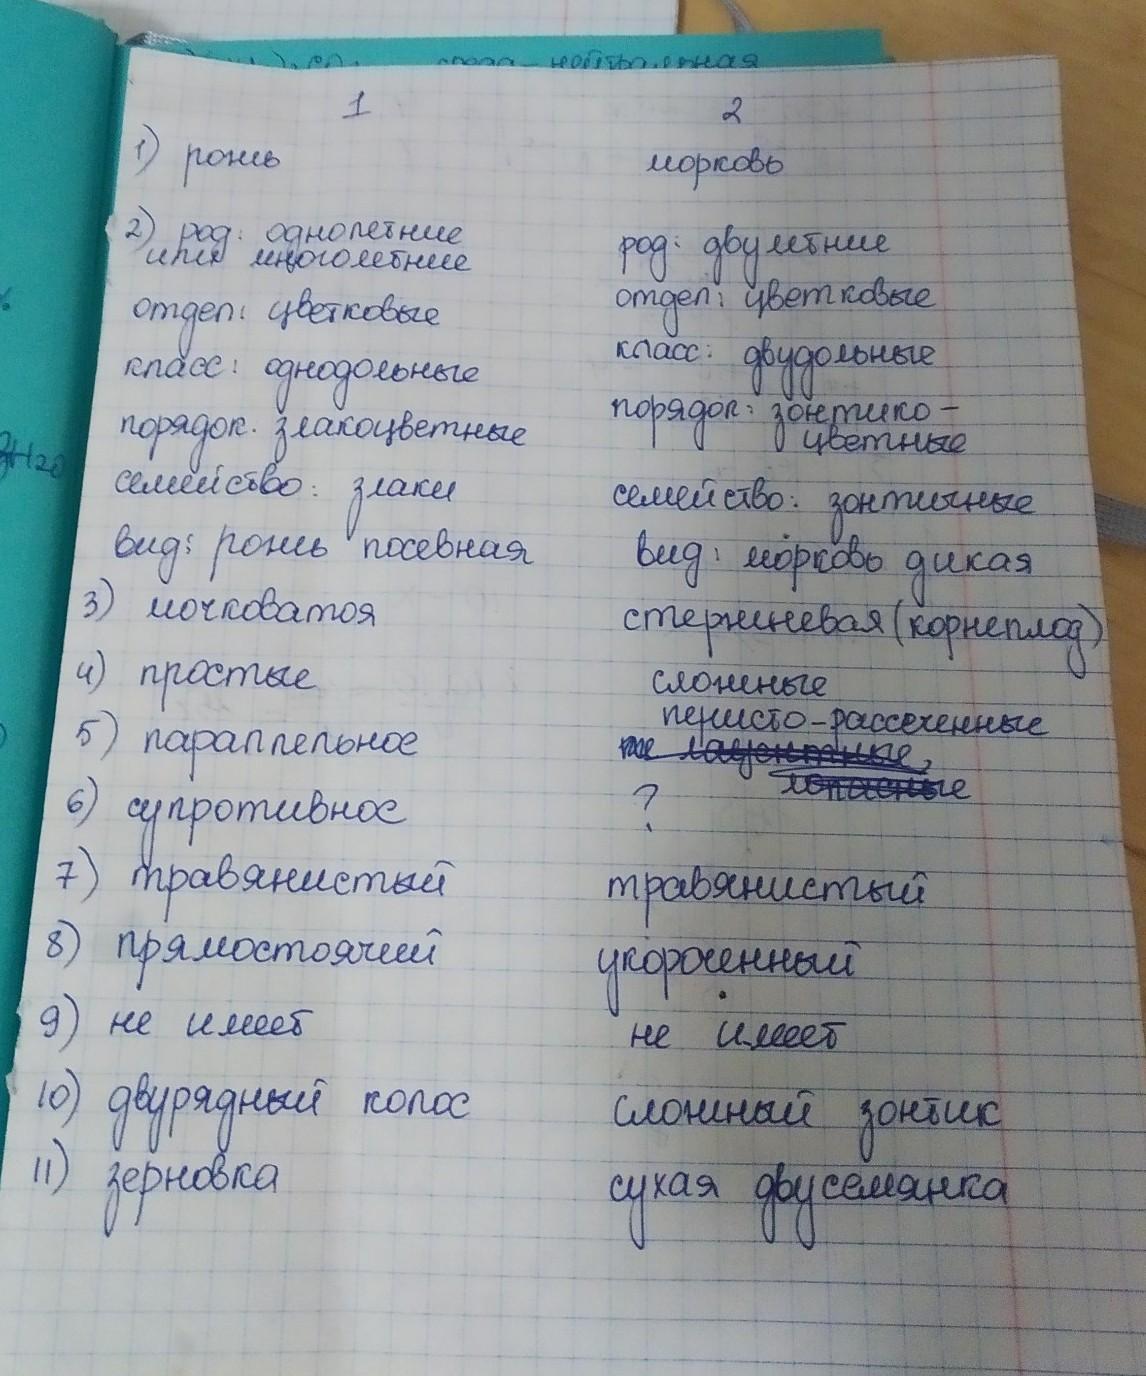 среда - нейтральная
1 2
1) рожь морковь
2) род: однолетние
или многолетние род: двулетние
отдел: цветковые отдел: цветковые
класс: однодольные класс: двудольные
порядок. злакоцветные порядок: зонтико-
цветные
семейство: злаки семейство: зонтичные
вид: рожь посевная вид: морковь дикая
3) мочковатоя стержневая (корнеплод)
4) простые сложные
перисто-рассеченные
5) параллельное
6) супротивное ?
7) травянистый травянистый
8) прямостоячий укороченный
9) не имеет не имеет
10) двурядный колос сложный зонтик
11) зерновка сухая двусемянка